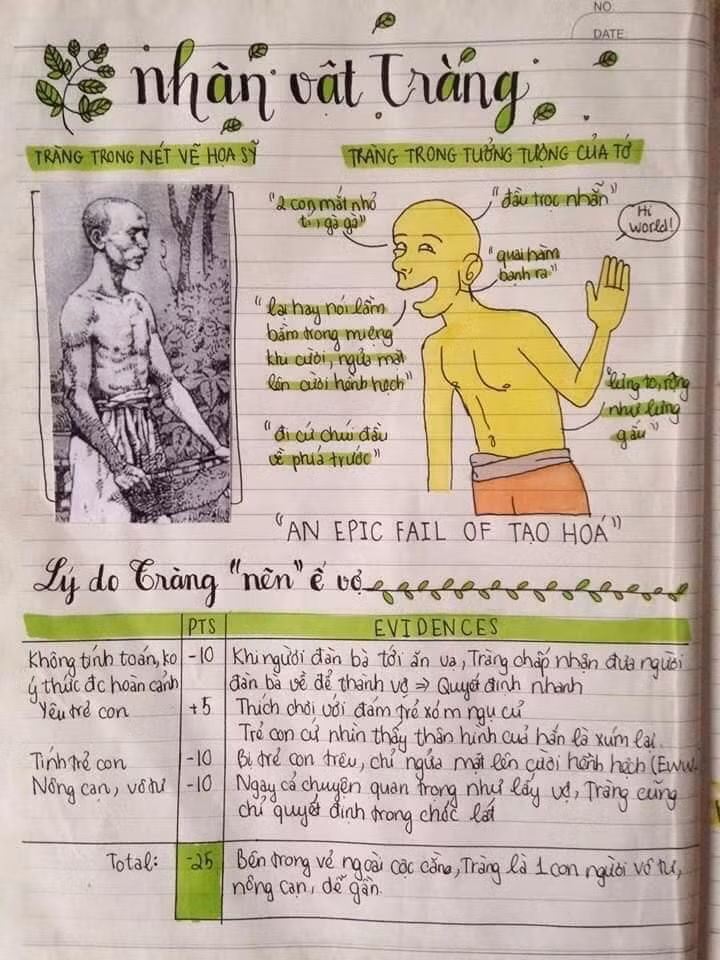 NO.
DATE
nhân vật Tràng
TRÀNG TRONG NÉT VẼ HỌA SỸ
TRÀNG TRONG TƯỞNG TƯỢNG CỦA TỚ
"2 con mắt nhỏ
tí, gà gà"
"đầu trọc nhẵn"
Hi
world!
"quai hàm
bạnh ra"
"lại hay nói lầm
bầm trong miệng
khi cười, ngửa mặt
lên cười hềnh hệch"
"lưng to, rộng
như lưng
gấu"
"đi cứ chúi đầu
về phía trước"
"AN EPIC FAIL OF TẠO HOÁ"
Lý do Tràng "nên" ế vợ
PTS
EVIDENCES
Không tính toán, ko
ý thức đc hoàn cảnh
-10
Khi người đàn bà tới ăn vạ, Tràng chấp nhận đưa người
đàn bà về để thành vợ => Quyết định nhanh
Yêu trẻ con
+5
Thích chơi với đám trẻ xóm ngụ cư
Trẻ con cứ nhìn thấy thân hình của hắn là xúm lại.
Tính trẻ con
-10
Bị trẻ con trêu, chỉ ngửa mặt lên cười hềnh hệch (Eww
Nông cạn, vô tư
-10
Ngay cả chuyện quan trọng như lấy vợ, Tràng cũng
chỉ quyết định trong chốc lát
Total:
-25
Bên trong vẻ ngoài cộc cằn, Tràng là 1 con người vô tư,
nông cạn, dễ gần.